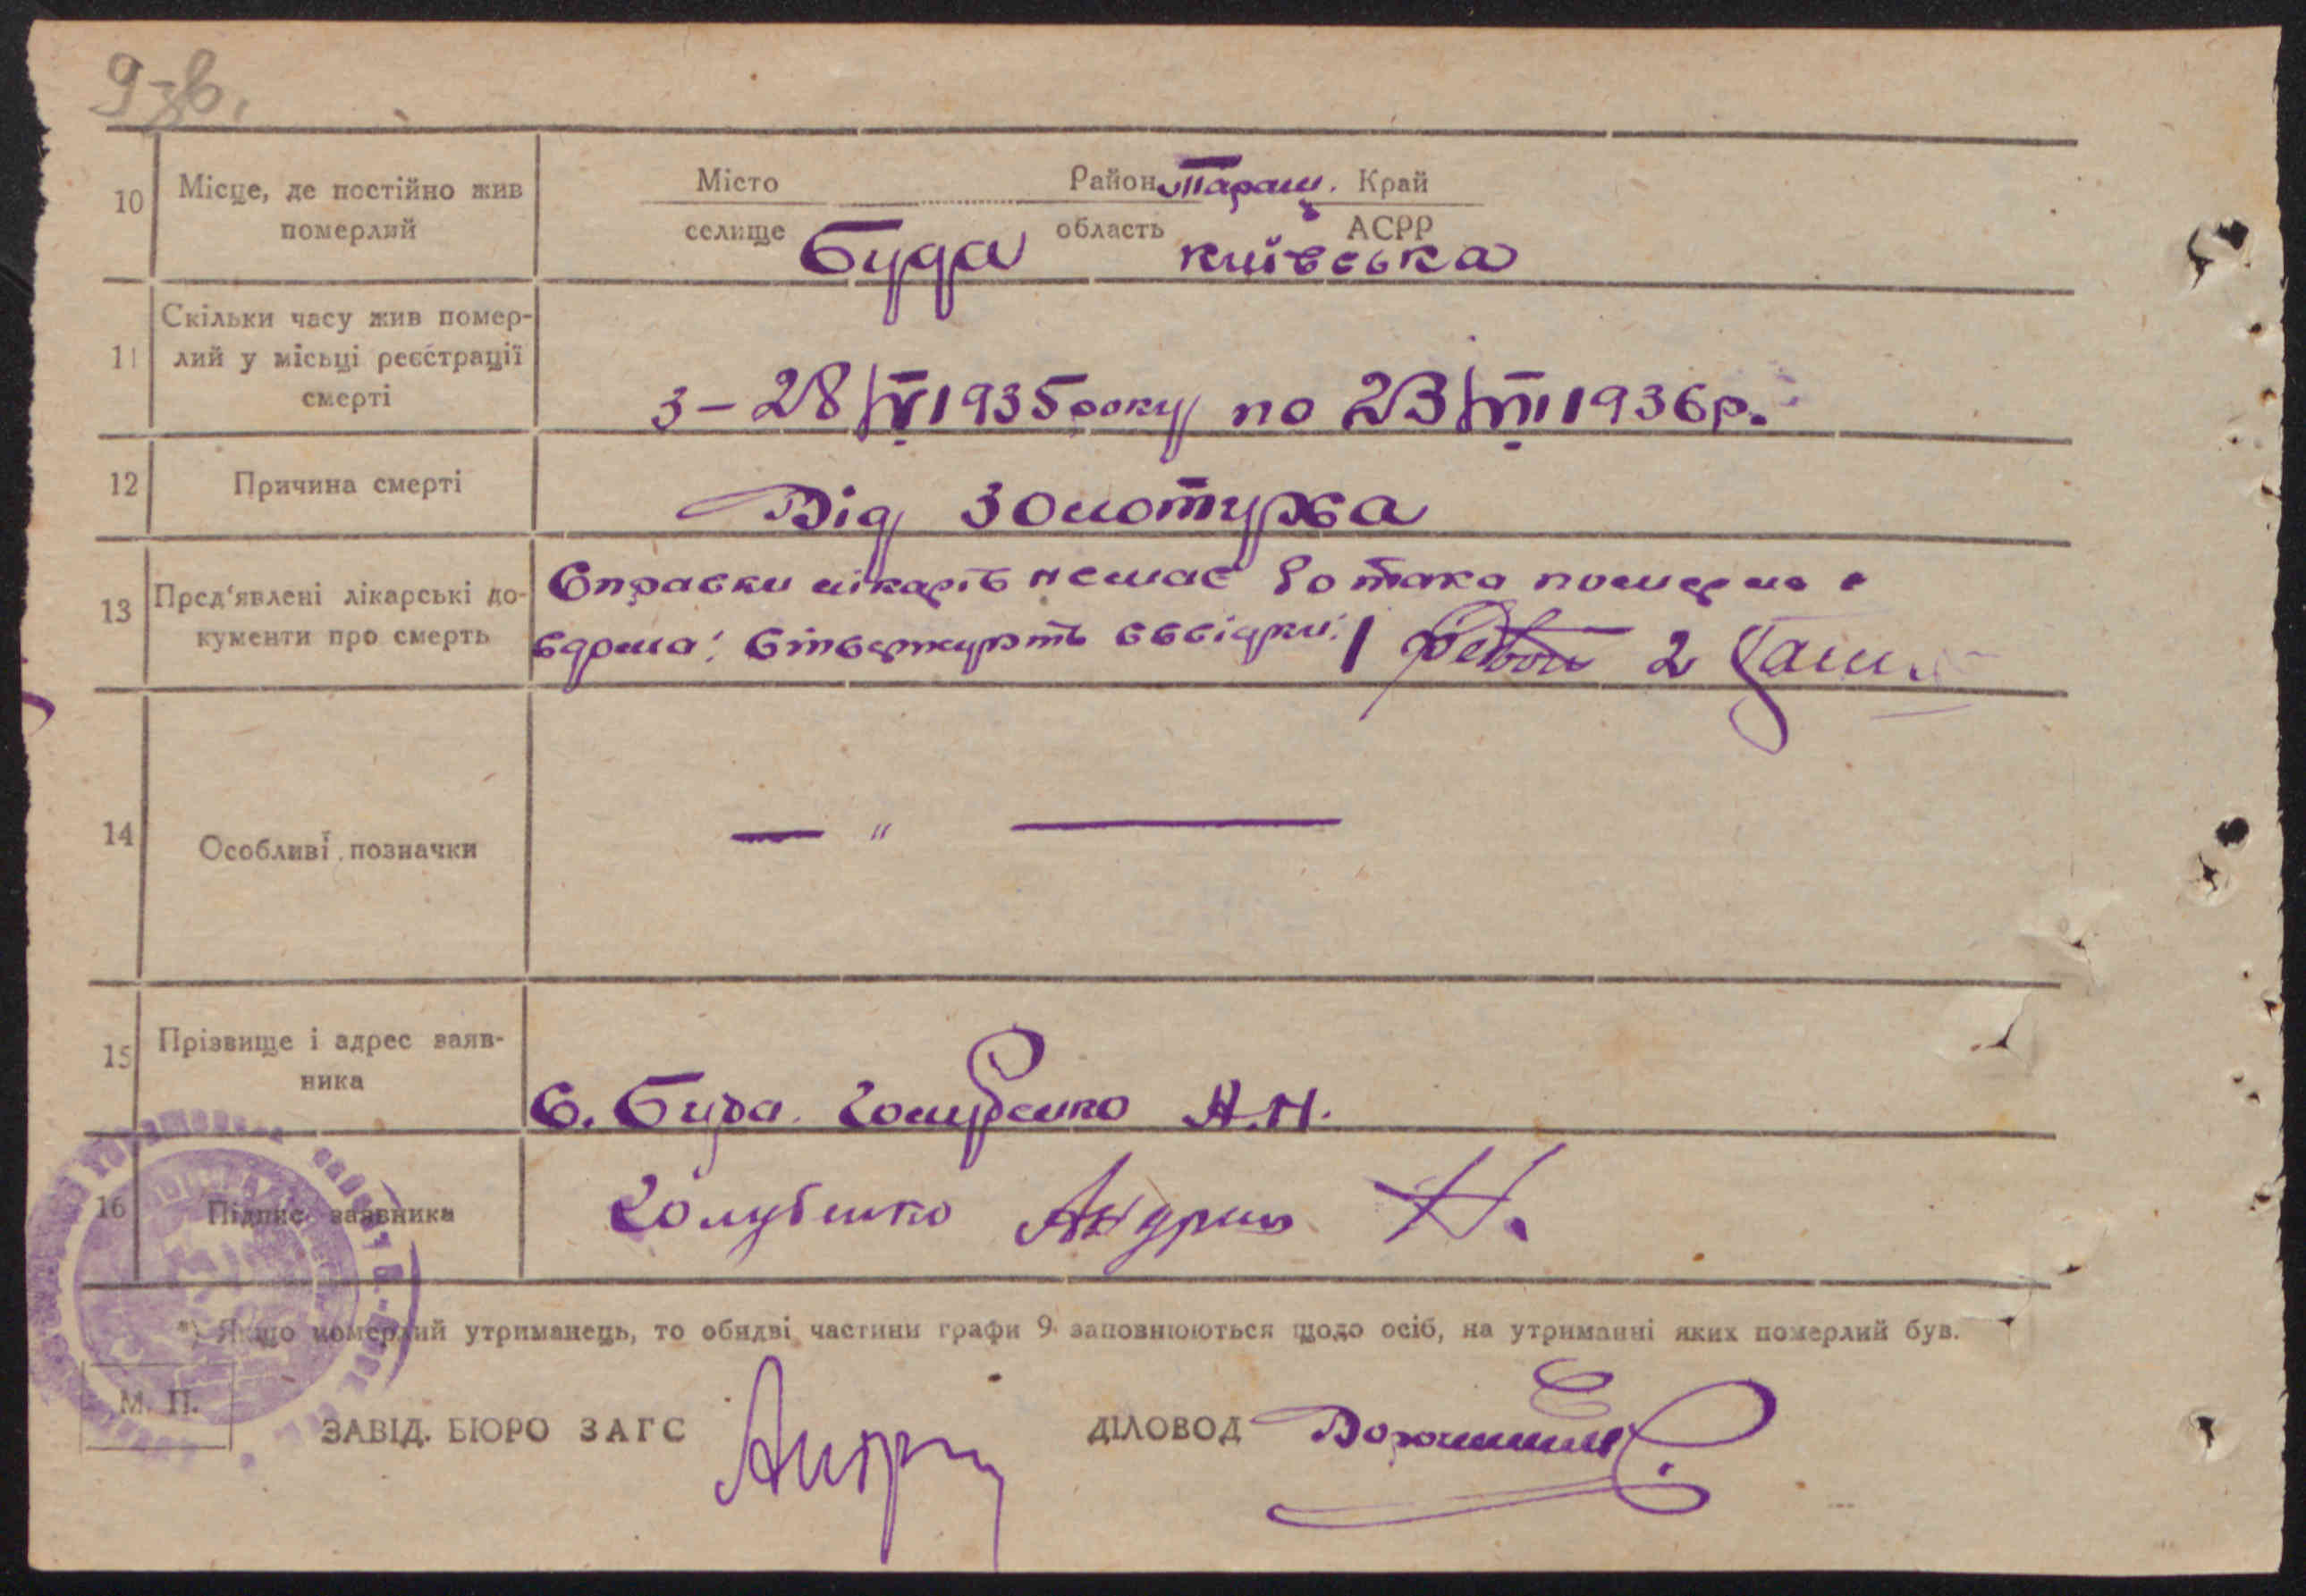 9 зв.
10 Місце, де постійно жив померлий
Місто Район Таращ. Край
селище Буда область Київська АСРР
11 Скільки часу жив помер-
лий у місьці реєстрації
смерті
з – 28/IV 1935 року по 23/VII 1936 р.
12 Причина смерті
Від золотуха
13 Пред'явлені лікарські до-
кументи про смерть
Справки лікарів немає бо така померла
вдома. Ствержують свідки: 1 2
14 Особливі позначки
— " —
15 Прізвище і адрес заяв-
ника
С. Буда. Голубенко А.Н.
16 Підпис заявника
Голубенко Андрий Н.
*) Якщо померлий утриманець, то обидві частини графи 9 заповнюються щодо осіб, на утриманні яких померлий був.
М. П.
ЗАВІД. БЮРО ЗАГС
ДІЛОВОД